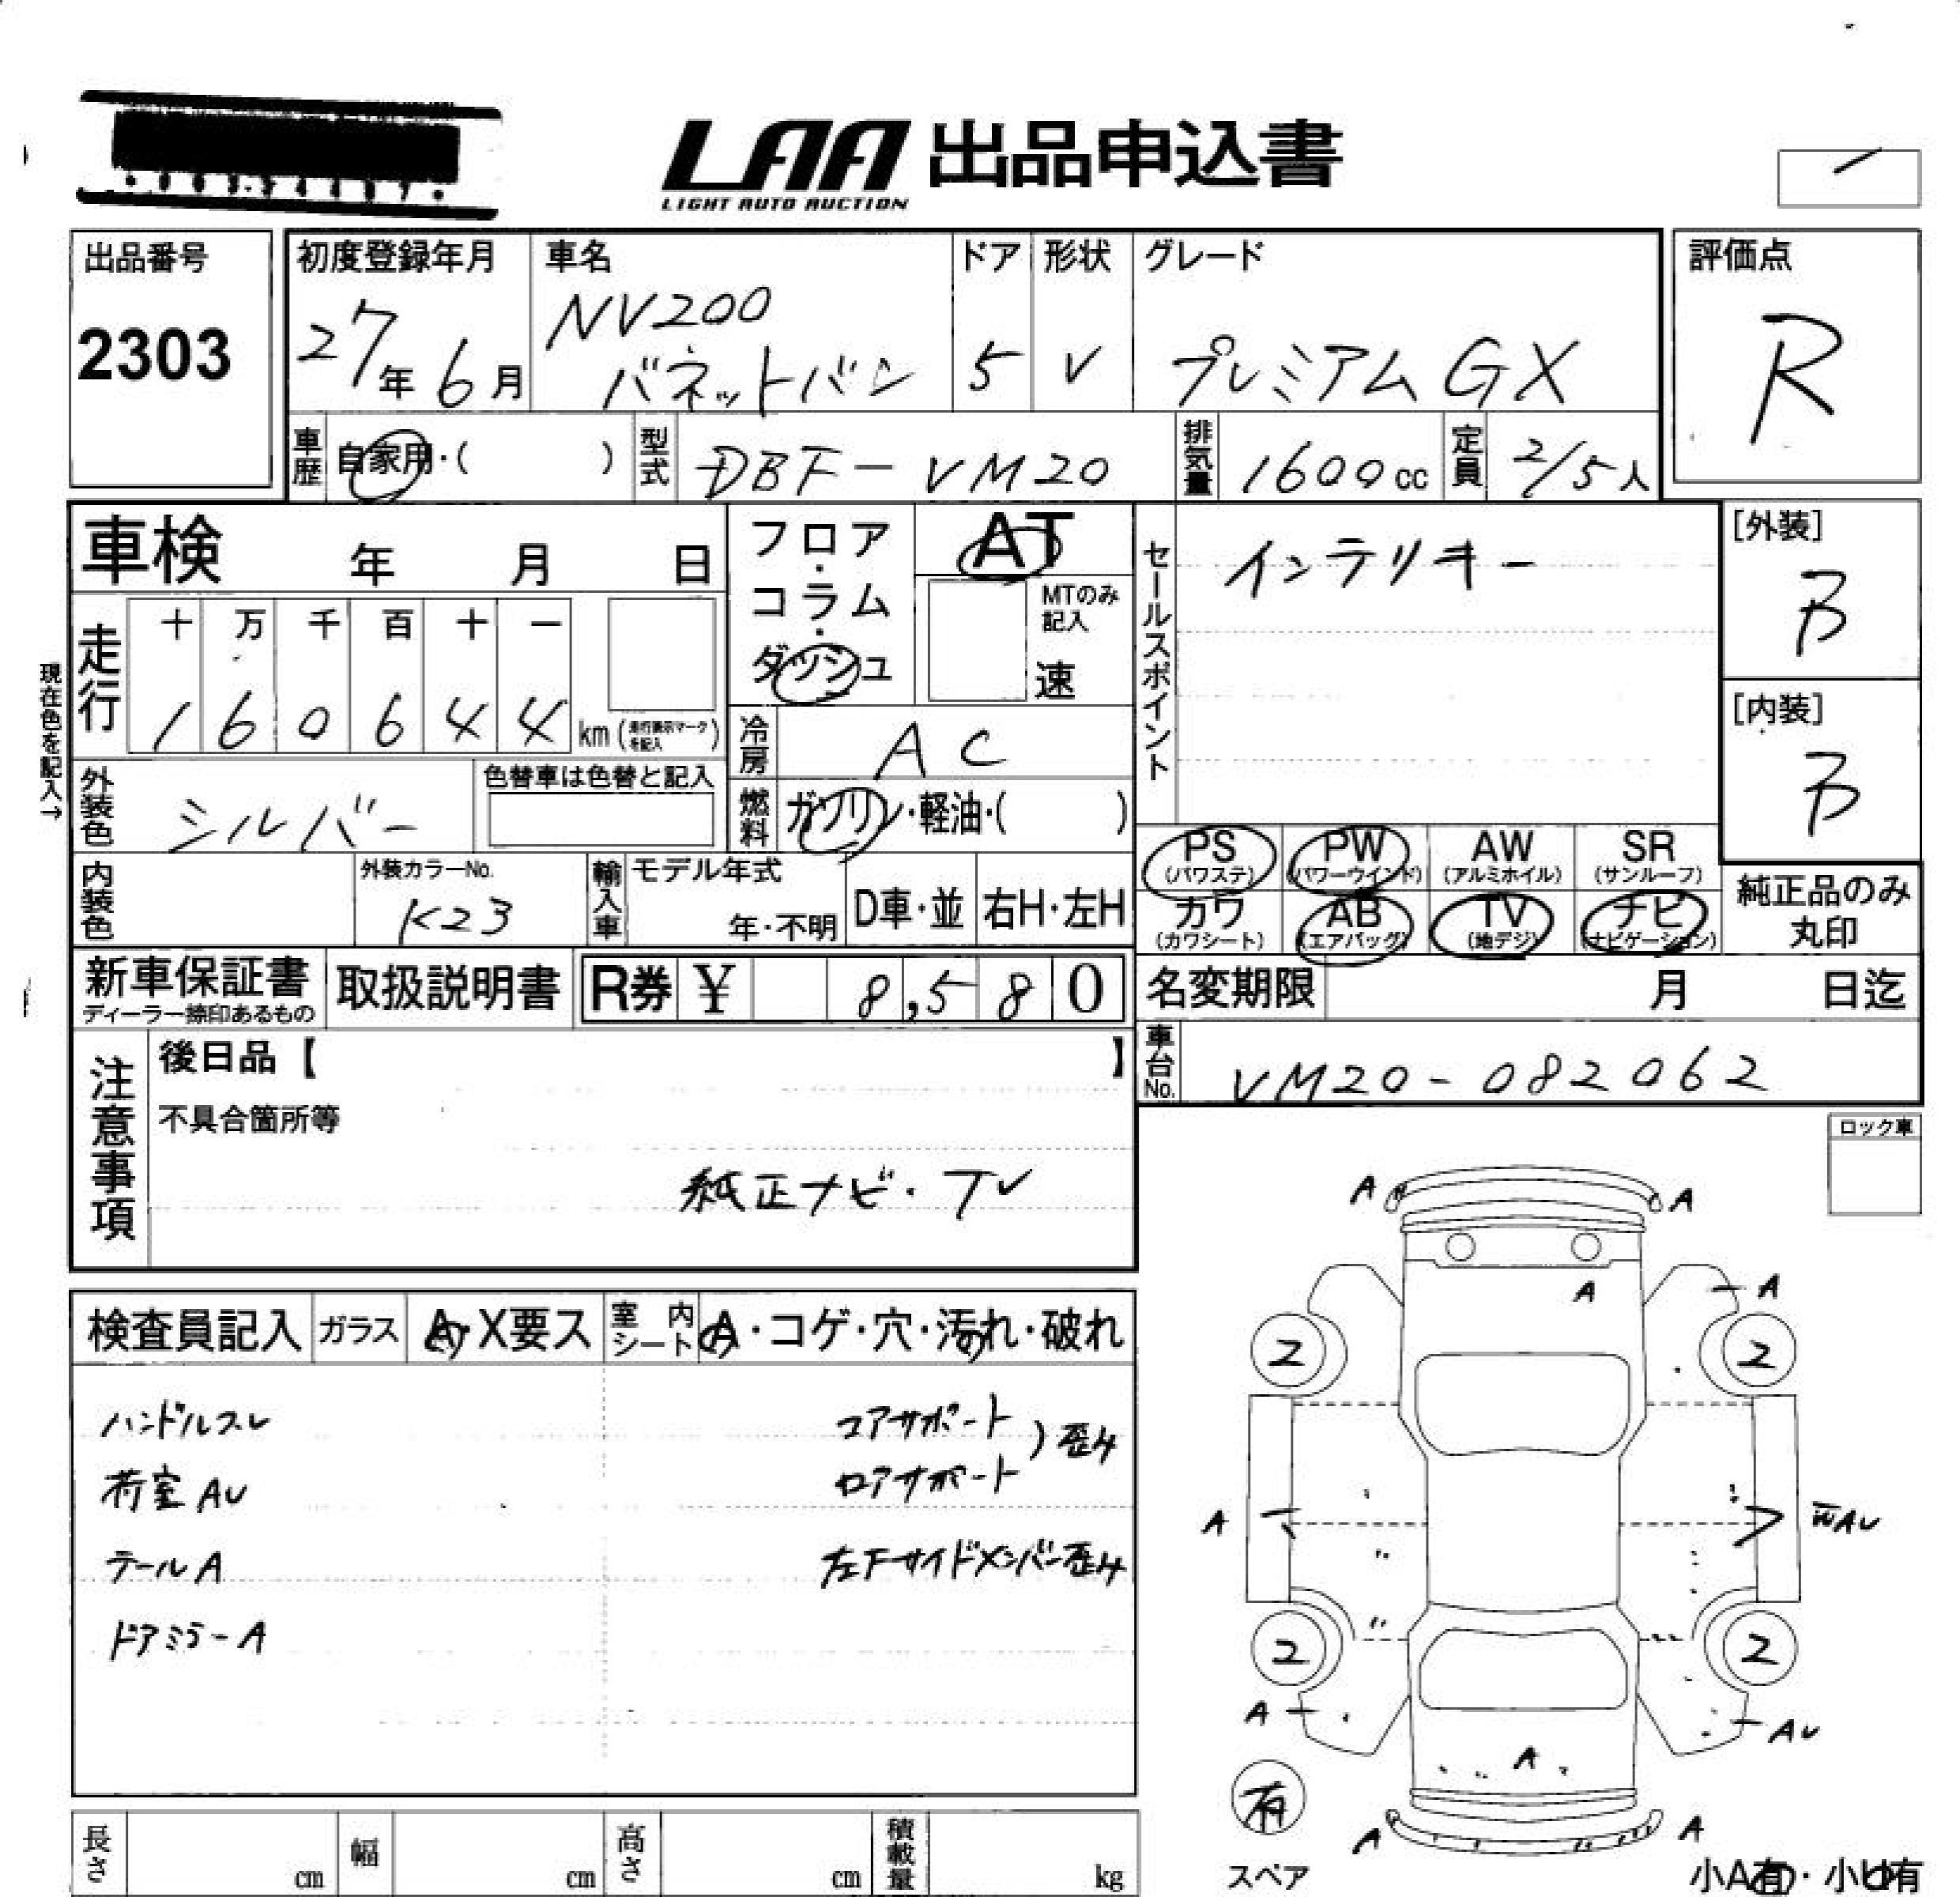 LAA 出品申込書
LIGHT AUTO AUCTION
出品番号
2303
初度登録年月
27年6月
車名
NV200
バネットバン
ドア
5
形状
V
グレード
プレミアムGX
評価点
R
車歴 自家用・( )
型式 DBF-VM20
排気量 1600cc
定員 2/5人
車検 年 月 日
フロア・コラム・ダッシュ
AT
MTのみ記入
速
セールスポイント
インテリキー
[外装]
B
[内装]
B
現在色を記入→
走行
十 万 千 百 十 一
1 6 0 6 4 4 km (走行表示マークを記入)
冷房 AC
外装色 シルバー
色替車は色替と記入
燃料 ガソリン・軽油・( )
内装色
外装カラーNo.
K23
輸入車
モデル年式
年・不明
D車・並
右H・左H
PS (パワステ)
PW (パワーウインド)
AW (アルミホイル)
SR (サンルーフ)
カワ (カワシート)
AB (エアバッグ)
TV (地デジ)
ナビ (ナビゲーション)
純正品のみ
丸印
新車保証書
ディーラー捺印あるもの
取扱説明書
R券 ¥ 8,580
名変期限 月 日迄
車台No. VM20-082062
注意事項
後日品【 】
不具合箇所等
純正ナビ・TV
ロック車
検査員記入
ガラス A・X要ス
室内シート A・コゲ・穴・汚れ・破れ
ハンドルスレ
荷室AU
テールA
ドアミラーA
コアサポート
ロアサポート
)歪み
左Fサイドメンバー歪み
A A
A A
2 2
A WAU
2 2
A AU
A
A A
有
スペア
小A有・小U有
長さ cm
幅 cm
高さ cm
積載量 kg